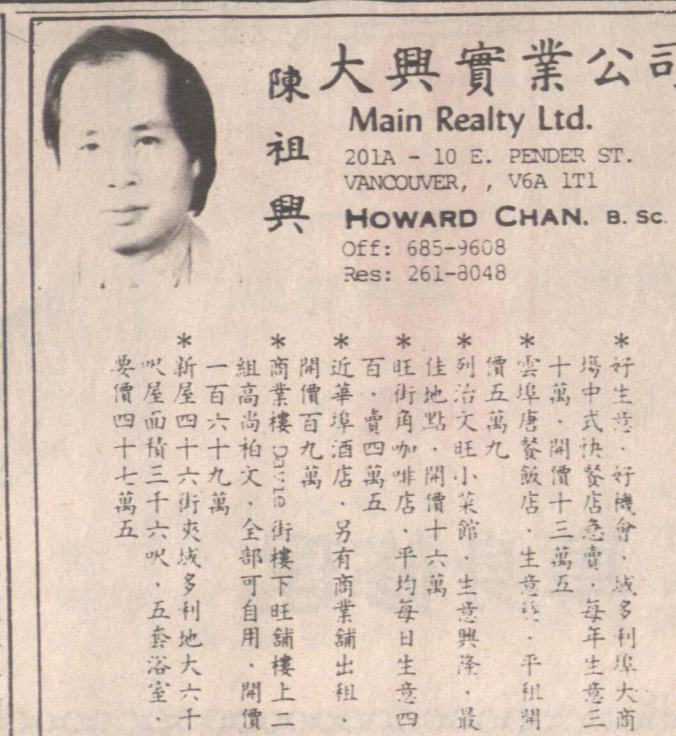 大興實業公司
陳祖興
Main Realty Ltd.
201A - 10 E. PENDER ST.
VANCOUVER, , V6A 1T1
HOWARD CHAN. B. Sc.
Off: 685-9608
Res: 261-8048
*好生意．好機會．域多利埠大商
塲中式快餐店急賣．每年生意三
十萬．開價十三萬五
*雲埠唐餐飯店．生意．平租開
價五萬九
*列治文旺小菜館．生意興隆．最
佳地點．開價十六萬
*旺街角咖啡店．平均每日生意四
百．賣四萬五
*近華埠酒店．另有商業舖出租．
開價百九萬
*商業樓 Davie 街樓下旺舖樓上二
組高尚柏文．全部可自用．開價
一百六十九萬
*新屋四十六街夾域多利地大六千
呎屋面積三千六呎．五套浴室．
要價四十七萬五